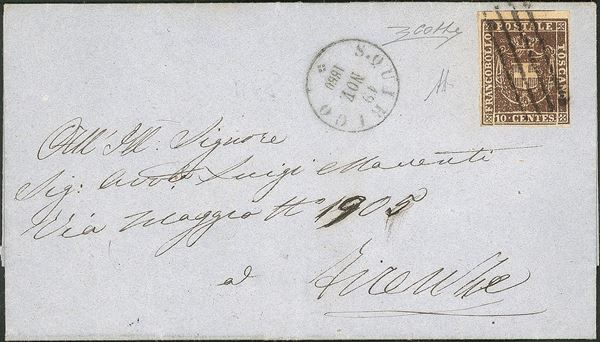 FRANCOBOLLO POSTALE TOSCANO
10 CENTES.
S. QUIRICO
19
NOV
1860
All' Ill. Signore
Sig: Avv. Luigi
Via Maggio No 1905
Firenze